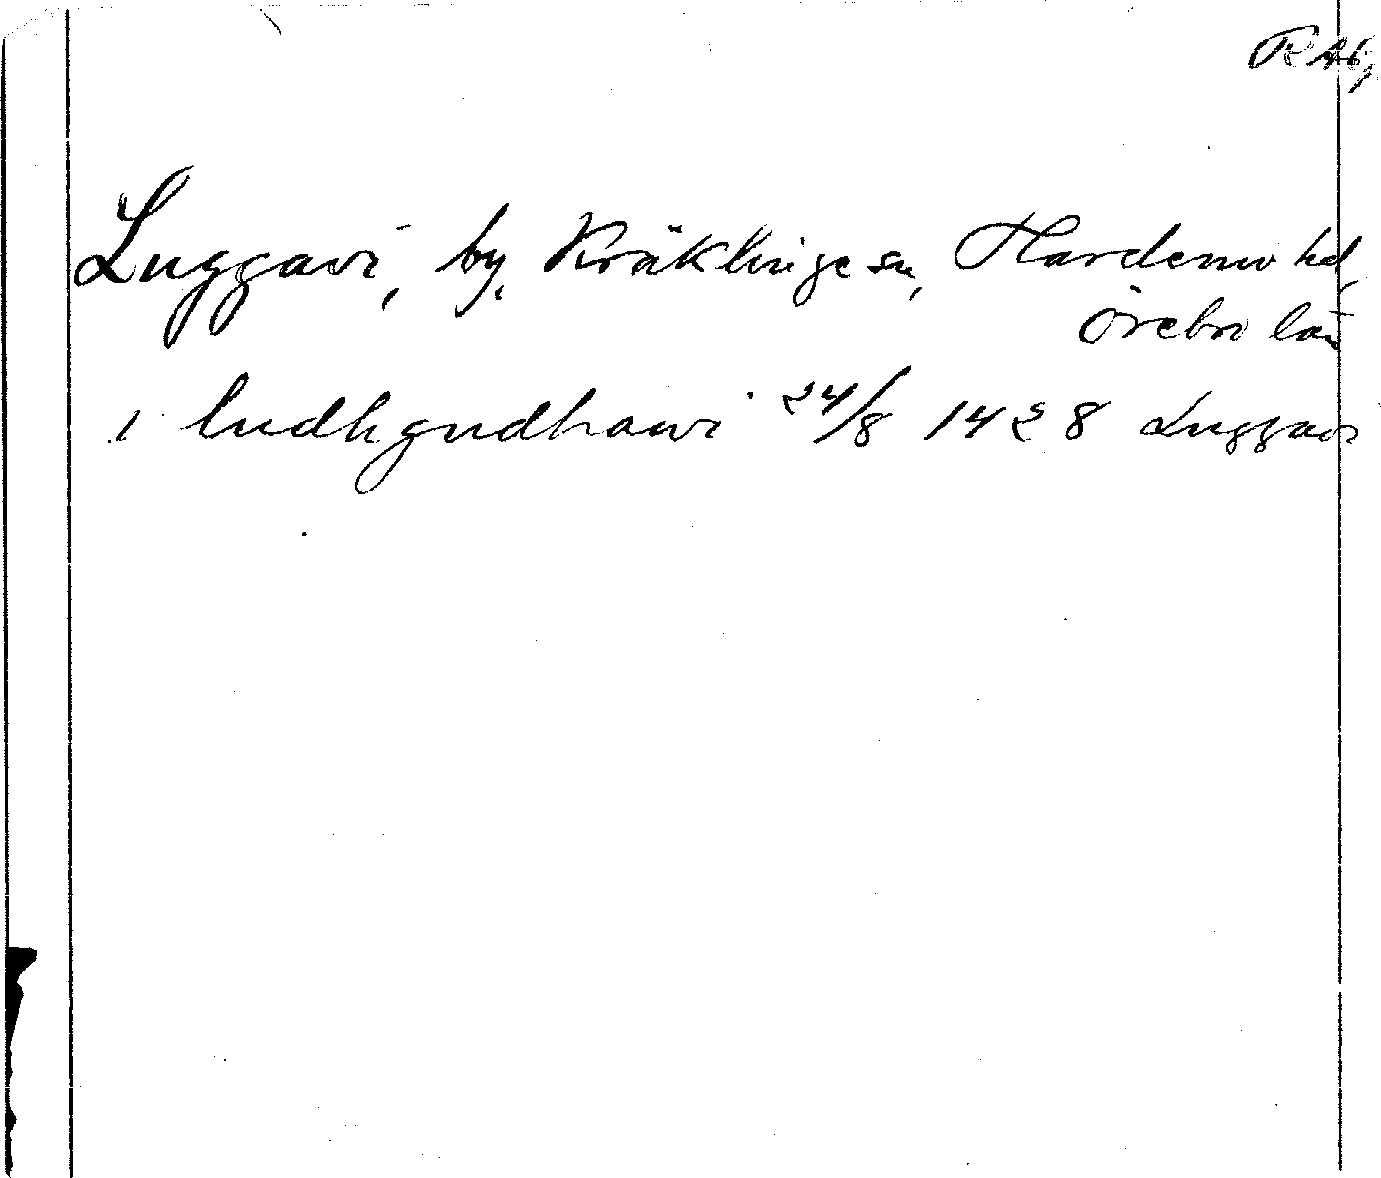 RAb,
Luggavi, by, Kräklinge sn, Hardemo hd,
Örebro län
i ludhgudhawi 24/8 1428 Luggavi